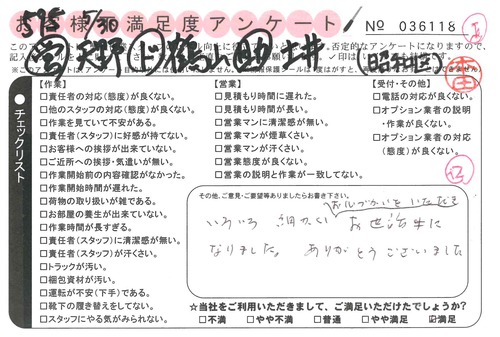 お客様満足度アンケート
No 036118
575 5/30
(昭和区)
チェックリスト
【作業】
□責任者の対応(態度)が良くない。
□他のスタッフの対応(態度)が良くない。
□作業を見ていて不安がある。
□責任者(スタッフ)に好感が持てない。
□お客様への挨拶が出来ていない。
□ご近所への挨拶・気遣いが無い。
□作業開始前の内容確認がなかった。
□作業開始時間が遅れた。
□荷物の取り扱いが雑である。
□お部屋の養生が出来ていない。
□作業時間が長すぎる。
□責任者(スタッフ)に清潔感が無い。
□責任者(スタッフ)が汗くさい。
□トラックが汚い。
□梱包資材が汚い。
□運転が不安(下手)である。
□靴下の履き替えをしてない。
□スタッフにやる気がみられない。
【営業】
□営業が遅れた。
□見積もり時間が長い。
□見積もり時間に遅れた。
□営業マンに清潔感が無い。
□営業マンが煙草くさい。
□営業マンが汗くさい。
□営業態度が良くない。
□営業の説明と作業が一致してない。
【受付・その他】
□電話の対応が良くない。
□オプション業者の説明・作業が良くない。
□オプション業者の対応(態度)が良くない。
その他、ご意見・ご要望等ありましたらお書き下さい。
おこづかいをいただき
いろいろ 細かく お世話に
なりました。 ありがとうございました
☆当社をご利用いただきまして、ご満足いただけたでしょうか?
□不満 □やや不満 □普通 □やや満足 ☑満足